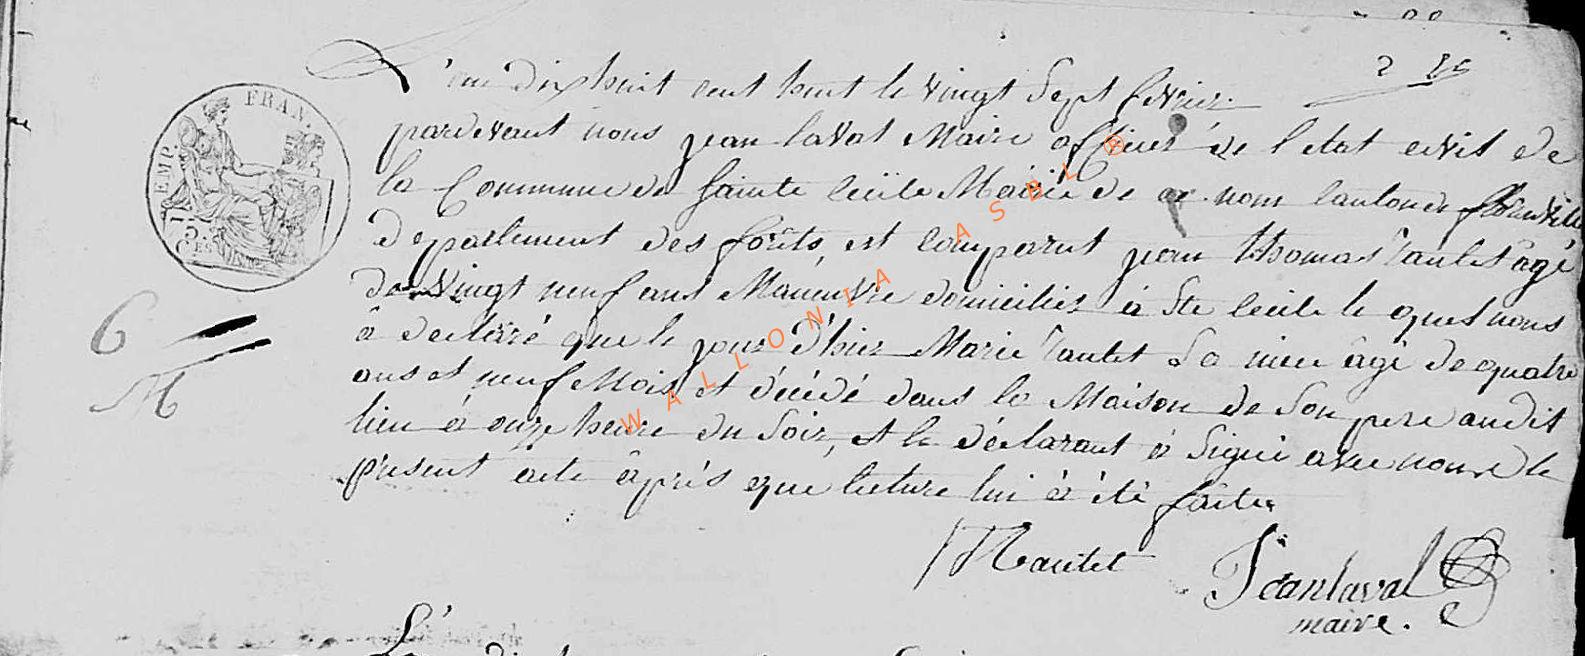 2
FRAN.
EMP.
5
Ces
L'an dix huit cent huit le vingt Sept fevrier.
pardevant nous jean laval Maire officier de l'etat civil de
la Commune de Sainte Cecile Mairie de ce nom Canton de florenville
departement des forêts, est comparut jean thomas Tautet âgé
de vingt neuf ans Maneuvre domiciliés à Ste Cecile le quel nous
à declaré que le jour d'hier Marie Tautet Sa niece âgé de quatre
ans et neuf Mois et décédé dans la Maison de Son pere audit
lieu à onze heure du Soir, et le déclarant à Signé avec nous le
present acte âprés que lecture lui à été faite
6
M
Tautet
Jean laval
maire.
WALLONIA ASBL ®
L'